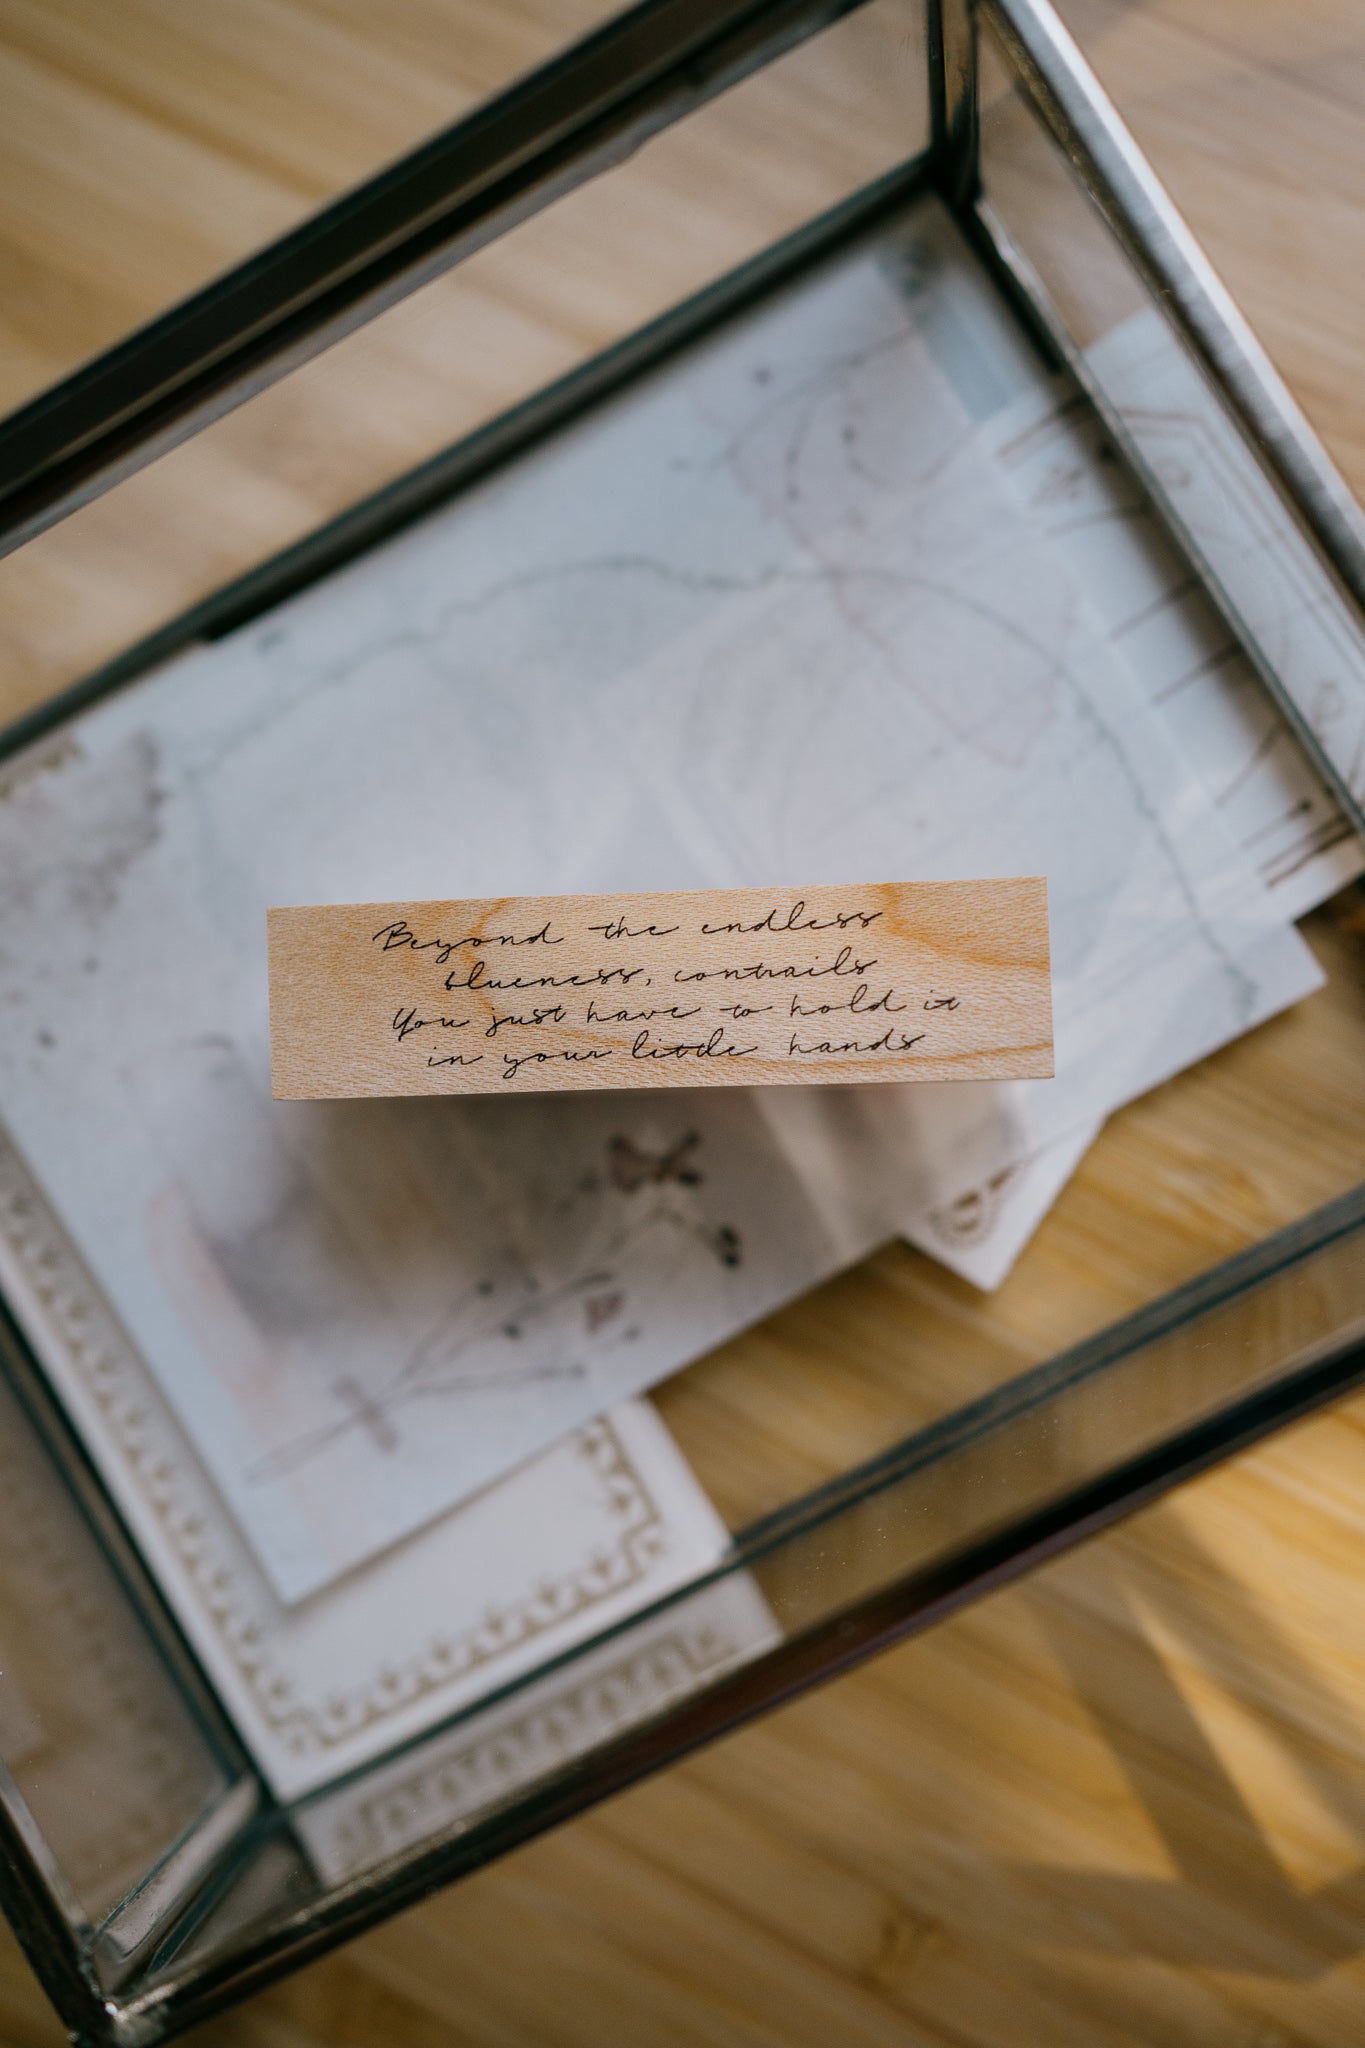 Beyond the endless
blueness, contrails
You just have to hold it
in your little hands